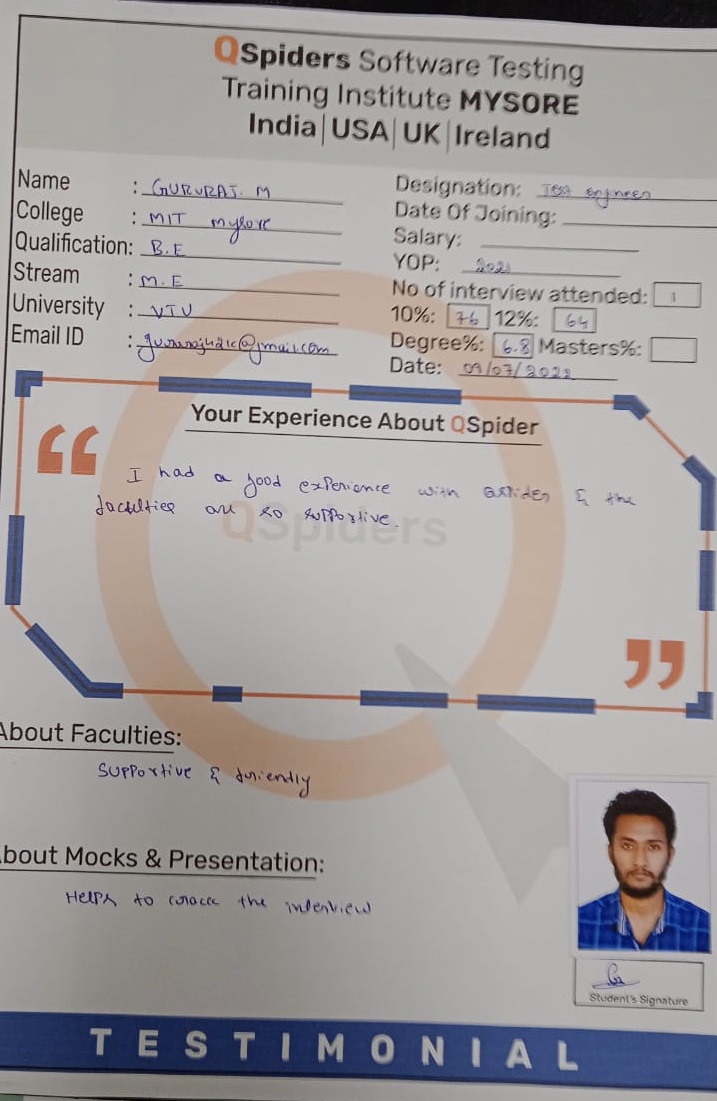 QSpiders Software Testing
Training Institute MYSORE
India|USA|UK|Ireland
Name : GURURAJ. M
College : MIT mysore
Qualification: B.E
Stream : M.E
University : VTU
Email ID : @gmail.com
Designation: Test Engineer
Date Of Joining:
Salary:
YOP: 2021
No of interview attended: 1
10%: 76 12%: 64
Degree%: 6.8 Masters%:
Date: 09/07/2022
Your Experience About QSpider
“
I had a good experience with & the
faculties are so supportive.
QSpiders
”
About Faculties:
Supportive & friendly
bout Mocks & Presentation:
Helps to crack the interview
Student's Signature
TESTIMONIAL